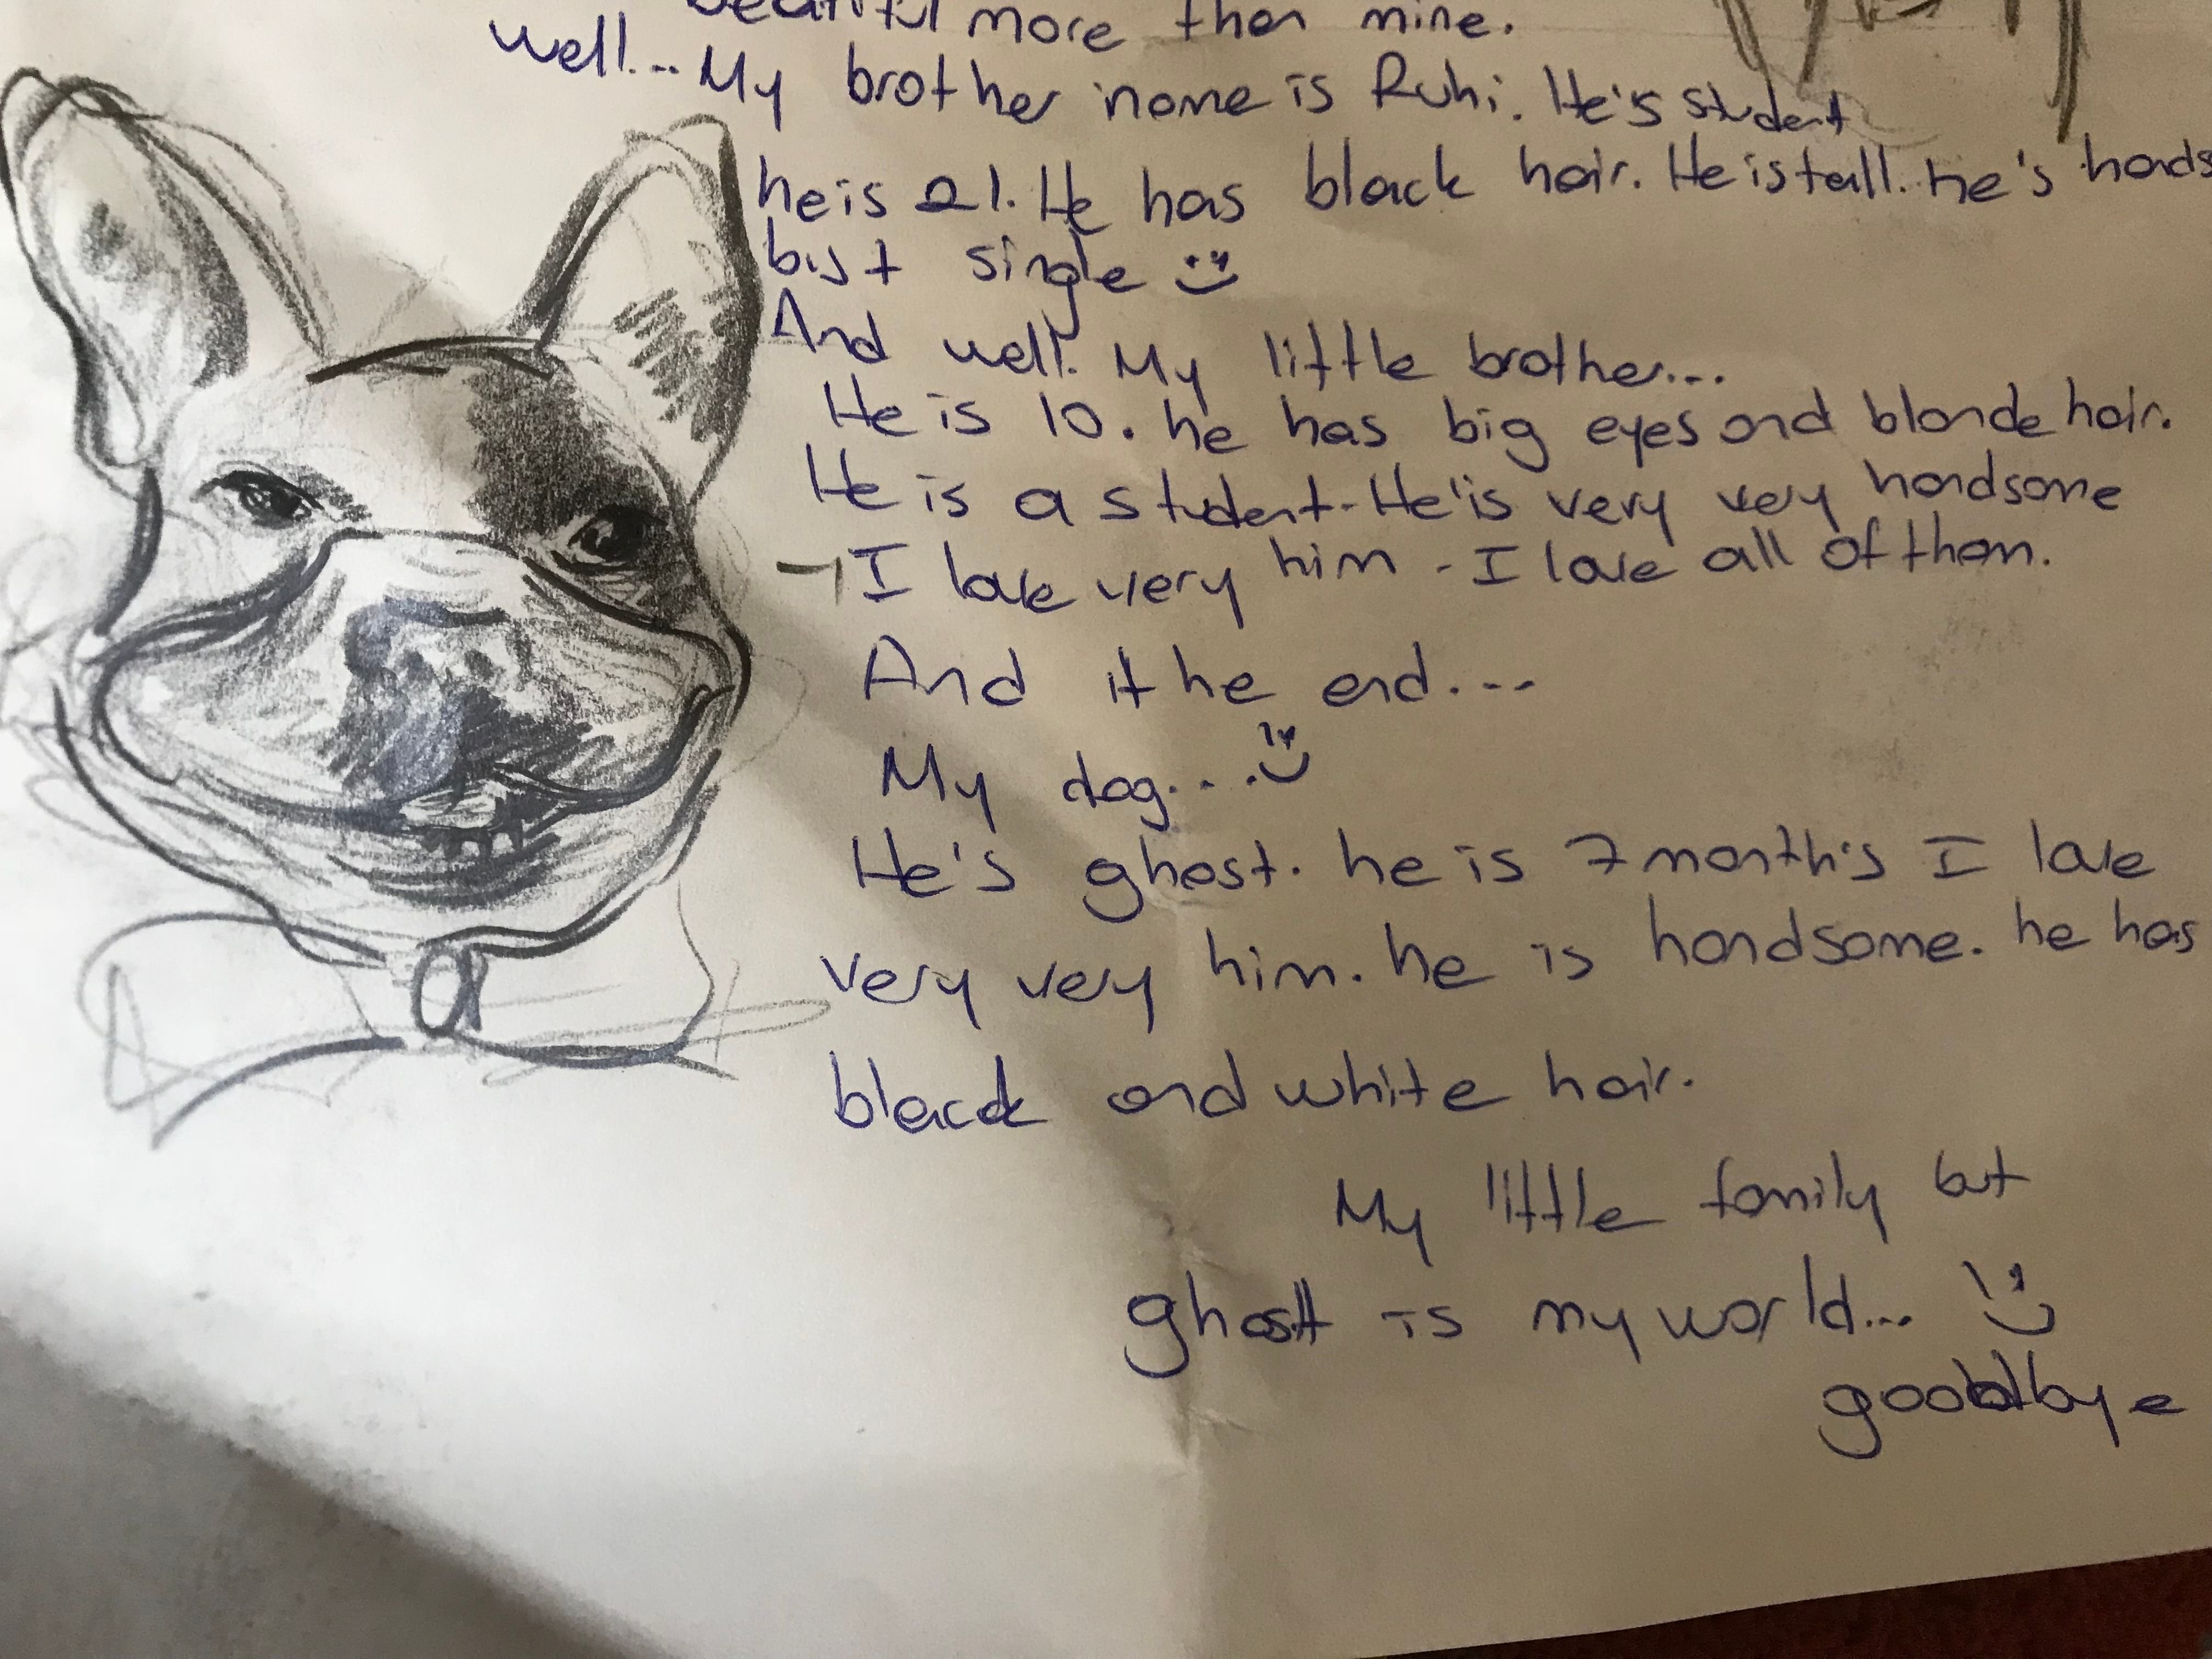 beautiful more then mine.
well... My brother name is Ruhi. He's student
he is 21. He has black hair. He is tall. he's hands
but single :)
And well. My little brother...
He is 10. he has big eyes and blonde hair.
He is a student. He'is very very handsome
I love very him - I love all of them.
And it he end...
My dog.... :)
He's ghost. he is 7 month's I love
very very him. he is handsome. he has
black and white hair.
My little family but
ghost is my world... :)
goodbye